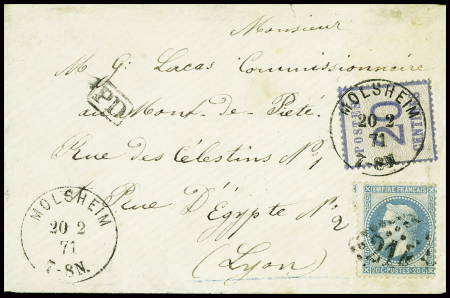 Monsieur
M G. Lucas Commissionnaire
au Mont-de Piété.
Rue des Célestins N° 1
Rue d'Égypte N° 2
(Lyon)
PD
MOLSHEIM
20 2
71
7-8N.
POSTES
20
CENTIMES
MOLSHEIM
20 2
71
7-8N.
EMPIRE FRANÇAIS
20C POSTES 20C